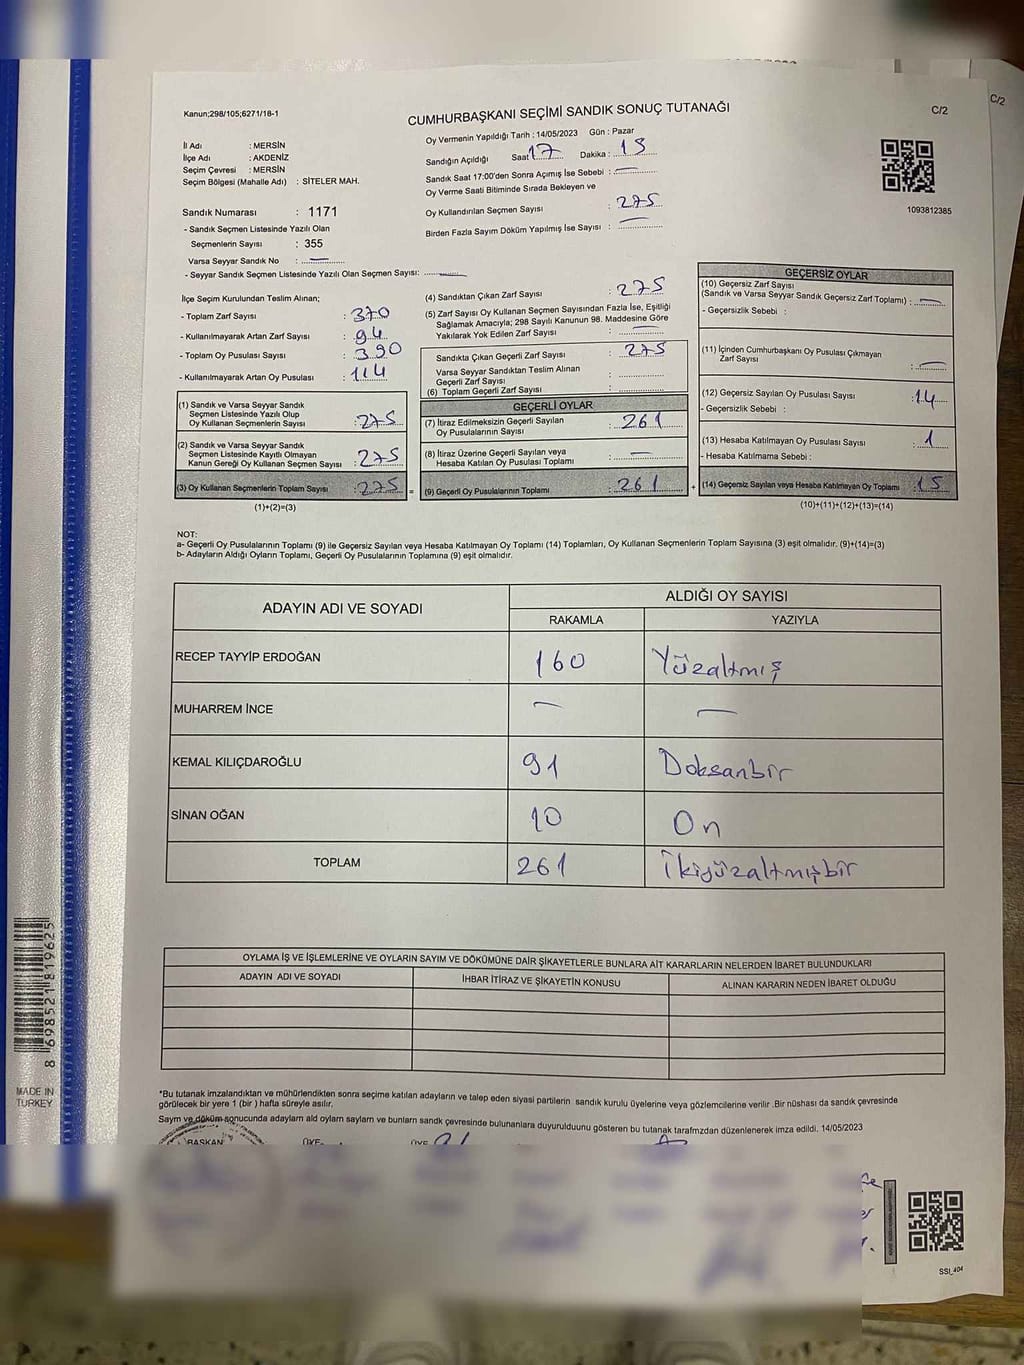 Kanun;298/105;6271/18-1
CUMHURBAŞKANI SEÇİMİ SANDIK SONUÇ TUTANAĞI
C/2
C/2
İl Adı : MERSİN
İlçe Adı : AKDENİZ
Seçim Çevresi : MERSİN
Seçim Bölgesi (Mahalle Adı) : SİTELER MAH.
Oy Vermenin Yapıldığı Tarih : 14/05/2023 Gün : Pazar
Sandığın Açıldığı Saat 17 Dakika : 15
Sandık Saat 17:00'den Sonra Açımış İse Sebebi : —
Oy Verme Saati Bitiminde Sırada Bekleyen ve
Oy Kullandırılan Seçmen Sayısı : 275
Birden Fazla Sayım Döküm Yapılmış İse Sayısı : —
1093812385
Sandık Numarası : 1171
- Sandık Seçmen Listesinde Yazılı Olan
Seçmenlerin Sayısı : 355
Varsa Seyyar Sandık No : —
- Seyyar Sandık Seçmen Listesinde Yazılı Olan Seçmen Sayısı: —
İlçe Seçim Kurulundan Teslim Alınan;
- Toplam Zarf Sayısı : 370
- Kullanılmayarak Artan Zarf Sayısı : 94
- Toplam Oy Pusulası Sayısı : 390
- Kullanılmayarak Artan Oy Pusulası : 114
(1) Sandık ve Varsa Seyyar Sandık
Seçmen Listesinde Yazılı Olup
Oy Kullanan Seçmenlerin Sayısı : 275
(2) Sandık ve Varsa Seyyar Sandık
Seçmen Listesinde Kayıtlı Olmayan
Kanun Gereği Oy Kullanan Seçmen Sayısı : 275
(3) Oy Kullanan Seçmenlerin Toplam Sayısı : 275
(1)+(2)=(3)
(4) Sandıktan Çıkan Zarf Sayısı : 275
(5) Zarf Sayısı Oy Kullanan Seçmen Sayısından Fazla İse, Eşitliği
Sağlamak Amacıyla; 298 Sayılı Kanunun 98. Maddesine Göre
Yakılarak Yok Edilen Zarf Sayısı : —
Sandıkta Çıkan Geçerli Zarf Sayısı : 275
Varsa Seyyar Sandıktan Teslim Alınan
Geçerli Zarf Sayısı :
(6) Toplam Geçerli Zarf Sayısı :
GEÇERLİ OYLAR
(7) İtiraz Edilmeksizin Geçerli Sayılan
Oy Pusulalarının Sayısı : 261
(8) İtiraz Üzerine Geçerli Sayılan veya
Hesaba Katılan Oy Pusulası Toplamı : —
= (9) Geçerli Oy Pusulalarının Toplamı : 261
GEÇERSİZ OYLAR
(10) Geçersiz Zarf Sayısı
(Sandık ve Varsa Seyyar Sandık Geçersiz Zarf Toplamı) : —
- Geçersizlik Sebebi :
(11) İçinden Cumhurbaşkanı Oy Pusulası Çıkmayan
Zarf Sayısı : —
(12) Geçersiz Sayılan Oy Pusulası Sayısı : 14
- Geçersizlik Sebebi :
(13) Hesaba Katılmayan Oy Pusulası Sayısı : 1
- Hesaba Katılmama Sebebi :
+ (14) Geçersiz Sayılan veya Hesaba Katılmayan Oy Toplamı : 15
(10)+(11)+(12)+(13)=(14)
NOT:
a- Geçerli Oy Pusulalarının Toplamı (9) ile Geçersiz Sayılan veya Hesaba Katılmayan Oy Toplamı (14) Toplamları, Oy Kullanan Seçmenlerin Toplam Sayısına (3) eşit olmalıdır. (9)+(14)=(3)
b- Adayların Aldığı Oyların Toplamı, Geçerli Oy Pusulalarının Toplamına (9) eşit olmalıdır.
ADAYIN ADI VE SOYADI
ALDIĞI OY SAYISI
RAKAMLA YAZIYLA
RECEP TAYYİP ERDOĞAN 160 Yüzaltmış
MUHARREM İNCE — —
KEMAL KILIÇDAROĞLU 91 Doksanbir
SİNAN OĞAN 10 On
TOPLAM 261 İkiyüzaltmışbir
OYLAMA İŞ VE İŞLEMLERİNE VE OYLARIN SAYIM VE DÖKÜMÜNE DAİR ŞİKAYETLERLE BUNLARA AİT KARARLARIN NELERDEN İBARET BULUNDUKLARI
ADAYIN ADI VE SOYADI İHBAR İTİRAZ VE ŞİKAYETİN KONUSU ALINAN KARARIN NEDEN İBARET OLDUĞU
*Bu tutanak imzalandıktan ve mühürlendikten sonra seçime katılan adayların ve talep eden siyasi partilerin sandık kurulu üyelerine veya gözlemcilerine verilir .Bir nüshası da sandık çevresinde
görülecek bir yere 1 (bir ) hafta süreyle asılır.
Sayım ve döküm sonucunda adayların aldı oyların sayılarn ve bunların sandk çevresinde bulunanlara duyurulduunu gösteren bu tutanak tarafmzdan düzenlenerek imza edildi. 14/05/2023
BAŞKAN ÜYE ÜYE
8 698521 819625
MADE IN
TURKEY
SSI_404